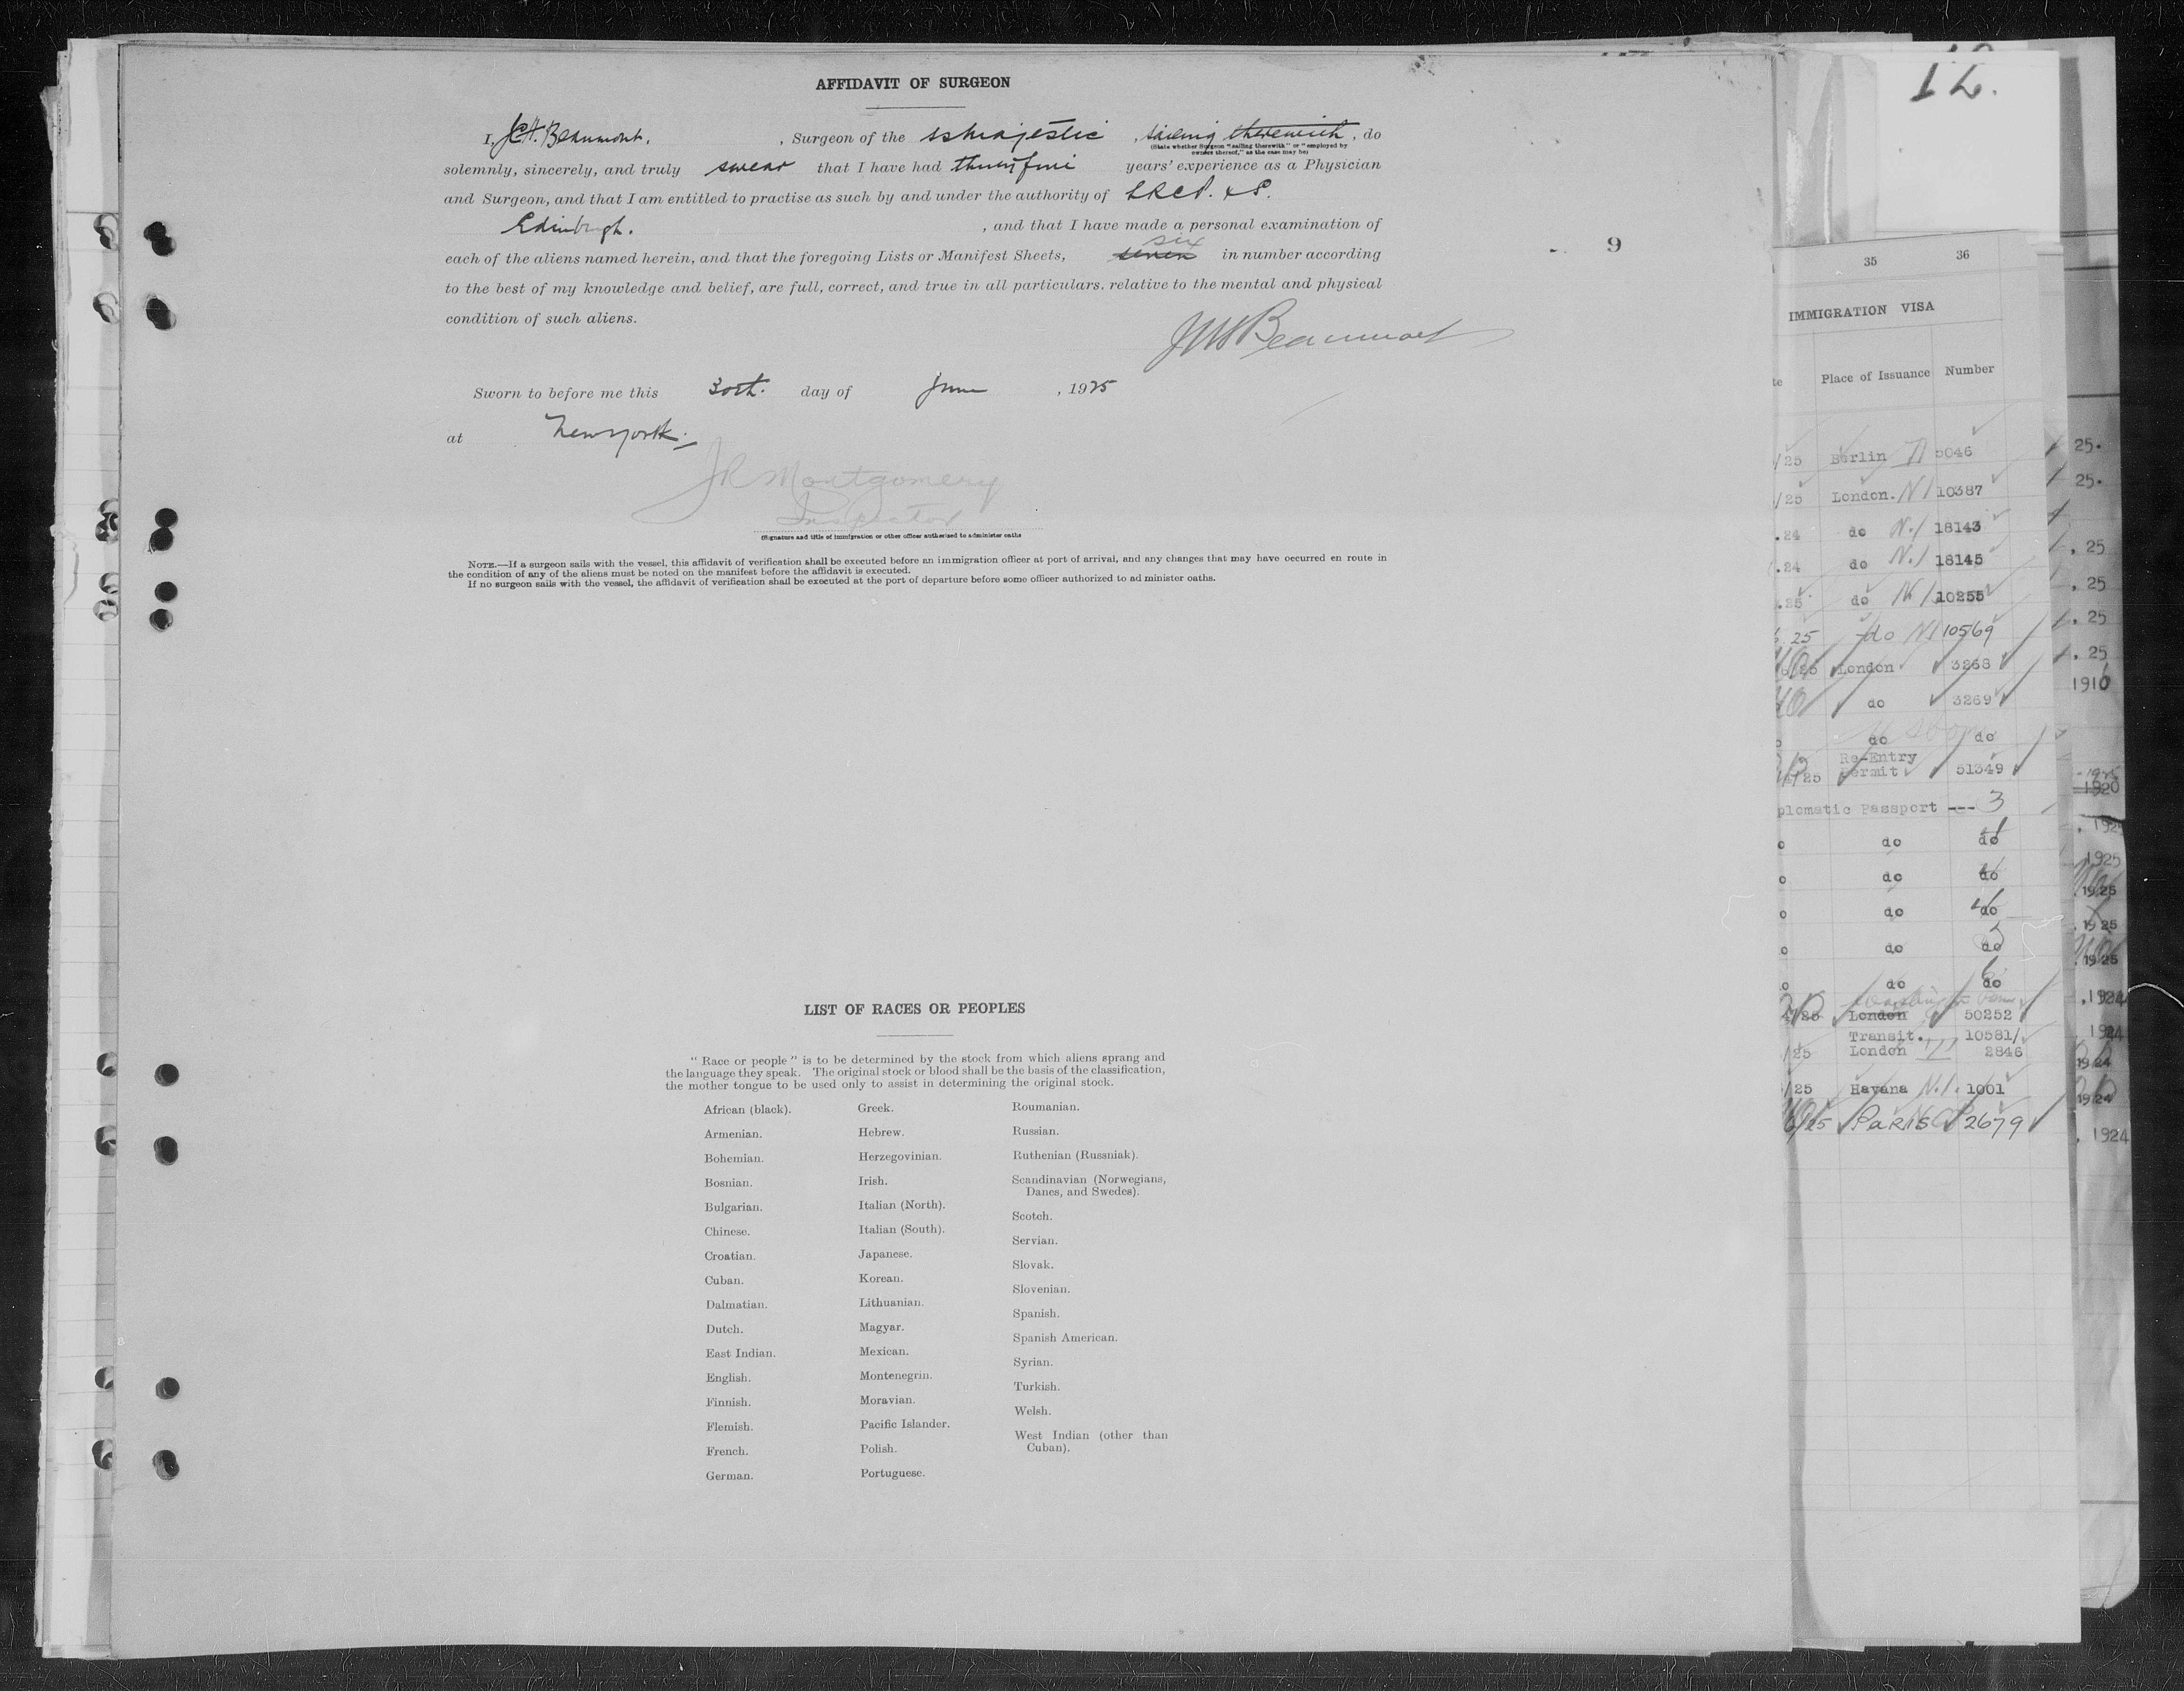 AFFIDAVIT OF SURGEON
I, J.C.H. Beaumont, , Surgeon of the ss Majestic , sailing therewith , do
(State whether Surgeon "sailing therewith" or "employed by
owners thereof," as the case may be)
solemnly, sincerely, and truly swear that I have had thirty five years' experience as a Physician
and Surgeon, and that I am entitled to practise as such by and under the authority of LRCP. & S.
Edinburgh. , and that I have made a personal examination of
six
each of the aliens named herein, and that the foregoing Lists or Manifest Sheets, seven in number according
to the best of my knowledge and belief, are full, correct, and true in all particulars. relative to the mental and physical
condition of such aliens.
Beaumont
Sworn to before me this 30th. day of June , 1925
at New York.
JR Montgomery
Inspector
(Signature and title of immigration or other officer authorised to administer oaths
NOTE.—If a surgeon sails with the vessel, this affidavit of verification shall be executed before an immigration officer at port of arrival, and any changes that may have occurred en route in
the condition of any of the aliens must be noted on the manifest before the affidavit is executed.
If no surgeon sails with the vessel, the affidavit of verification shall be executed at the port of departure before some officer authorized to ad minister oaths.
9
LIST OF RACES OR PEOPLES
" Race or people " is to be determined by the stock from which aliens sprang and
the language they speak. The original stock or blood shall be the basis of the classification,
the mother tongue to be used only to assist in determining the original stock.
African (black).
Armenian.
Bohemian.
Bosnian.
Bulgarian.
Chinese.
Croatian.
Cuban.
Dalmatian.
Dutch.
East Indian.
English.
Finnish.
Flemish.
French.
German.
Greek.
Hebrew.
Herzegovinian.
Irish.
Italian (North).
Italian (South).
Japanese.
Korean.
Lithuanian.
Magyar.
Mexican.
Montenegrin.
Moravian.
Pacific Islander.
Polish.
Portuguese.
Roumanian.
Russian.
Ruthenian (Russniak).
Scandinavian (Norwegians,
Danes, and Swedes).
Scotch.
Servian.
Slovak.
Slovenian.
Spanish.
Spanish American.
Syrian.
Turkish.
Welsh.
West Indian (other than
Cuban).
35 36
IMMIGRATION VISA
Place of Issuance Number
/25 Berlin 5046
/25 London. N1 10387
.24 do N.1 18143
.24 do N.1 18145
.25 do N1 10255
25 do N1 10569
25 London 3268
do 3269
do do
Re-Entry
25 Permit 51349
plomatic Passport --- 3
do do
do do
do do
do do
do do
25 London 50252
Transit. 10581/
/25 London 2846
/25 Havana N.1. 1001
25 Paris 2679
25.
25.
. 25
. 25
. 25
. 25
1910
1920
. 1925
1925
.1925
.1925
.1925
.1924
1924
1924
1924
. 1924